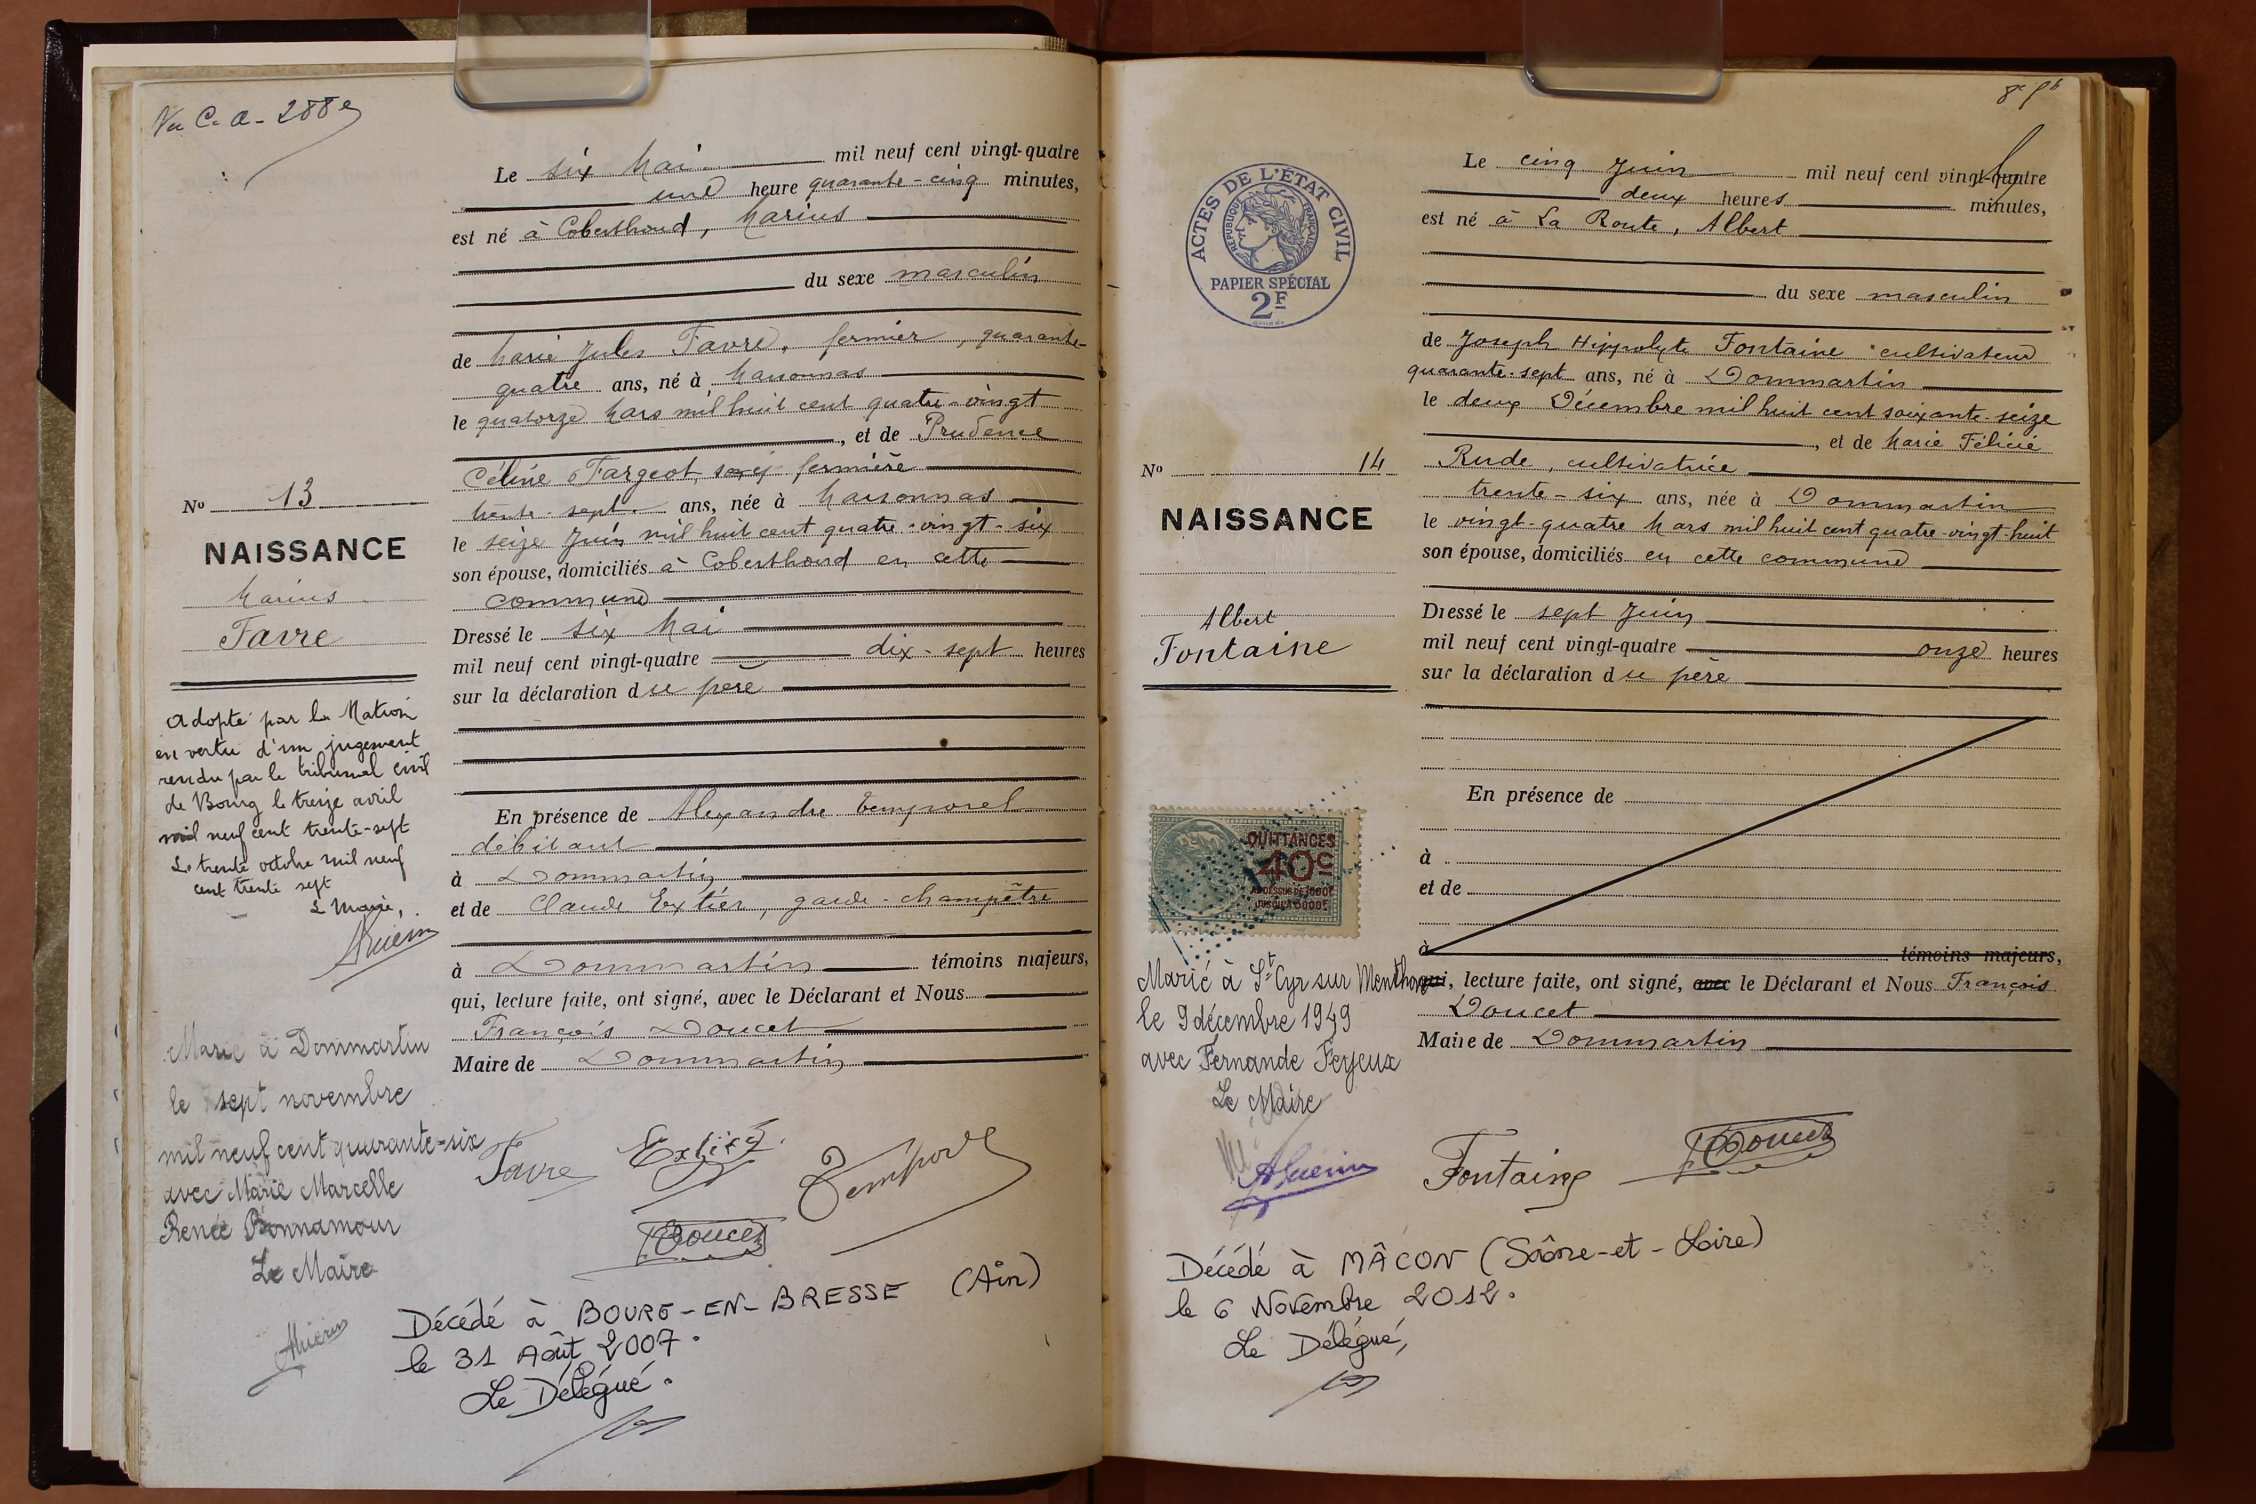 Vu C. a - 288
Le six Mai mil neuf cent vingt-quatre
une heure quarante-cinq minutes,
est né à Coberthoud, Marius
du sexe masculin
de Marie Jules Favre, fermier, quarante-
quatre ans, né à Marsonnas
le quatorze Mars mil huit cent quatre-vingt
, et de Prudence
Céline Fargeot, fermière
trente-sept ans, née à Marsonnas
le seize Juin mil huit cent quatre-vingt-six
son épouse, domiciliés à Coberthoud en cette
commune
Dressé le six Mai
mil neuf cent vingt-quatre dix-sept heures
sur la déclaration du père
En présence de Alexandre Temporel
débitant
à Dommartin
et de Claude Extier, garde-champêtre
à Dommartin témoins majeurs,
qui, lecture faite, ont signé, avec le Déclarant et Nous
François Doucet
Maire de Dommartin
No 13
NAISSANCE
Marius
Favre
Adopté par la Nation
en vertu d'un jugement
rendu par le tribunal civil
de Bourg le treize avril
mil neuf cent trente-sept
Le trente octobre mil neuf
cent trente sept
Le Maire,
Marié à Dommartin
le sept novembre
mil neuf cent quarante-six
avec Marie Marcelle
Renée Bonnamour
Le Maire
Favre Extier Temporel
Doucet
Décédé à BOURG-EN-BRESSE (Ain)
le 31 Août 2007.
Le Délégué.
ACTES DE L'ÉTAT CIVIL
RÉPUBLIQUE FRANÇAISE
PAPIER SPÉCIAL
2F
Le cinq Juin mil neuf cent vingt-quatre
deux heures minutes,
est né à La Route, Albert
du sexe masculin
de Joseph Hippolyte Fontaine cultivateur
quarante-sept ans, né à Dommartin
le deux Décembre mil huit cent soixante-seize
, et de Marie Félicie
Rude, cultivatrice
trente-six ans, née à Dommartin
le vingt-quatre Mars mil huit cent quatre-vingt-huit
son épouse, domiciliés en cette commune
Dressé le sept Juin
mil neuf cent vingt-quatre onze heures
sur la déclaration du père
En présence de
à
et de
à témoins majeurs,
qui, lecture faite, ont signé, avec le Déclarant et Nous François
Doucet
Maire de Dommartin
No 14
NAISSANCE
Albert
Fontaine
QUITTANCES
40c
Marié à St Cyr sur Menthon
le 9 décembre 1949
avec Fernande Feyeux
Le Maire
Fontaine Doucet
Décédé à MÂCON (Saône-et-Loire)
le 6 Novembre 2012.
Le Délégué,